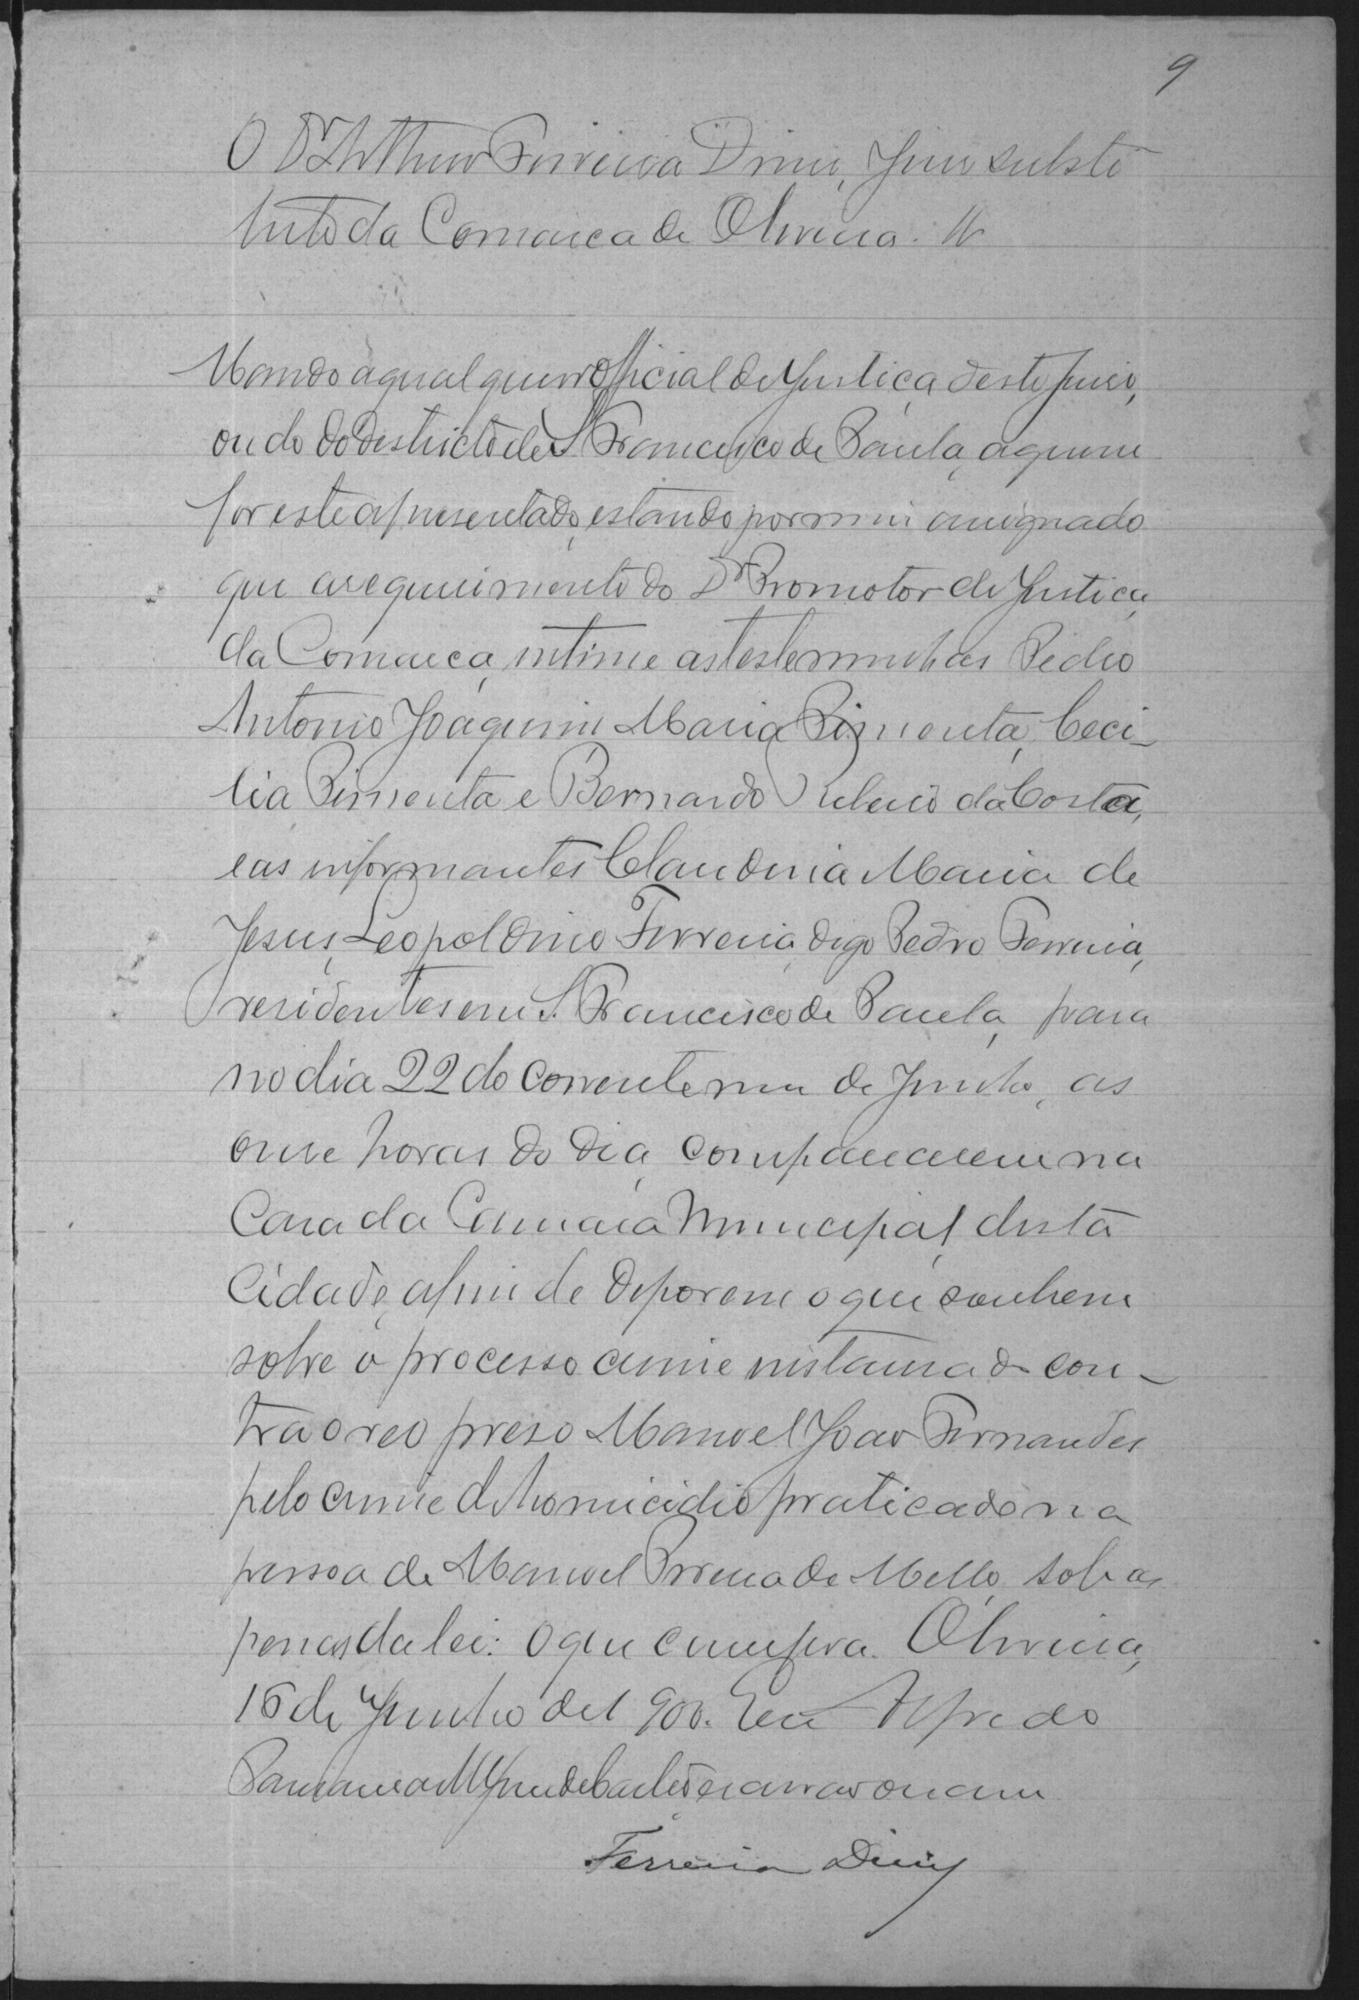 9
O Dr Arthur Ferreira Diniz, Juiz substi
tuto da Comarca de Oliveira. &
Mando a qualquer official de Justiça deste Juizo,
ou do do districto de S. Francisco de Paula, a quem
for este apresentado, estando por mim assignado
que a requerimento do Dr Promotor de Justiça
da Comarca, intime as testemunhas Pedro
Antonio Joaquim Maria Pimenta, Ceci-
lia Pimenta e Bernardo da Costa,
e as informantes Claudina Maria de
Jesus, Leopoldino Ferreira, digo Pedro Ferreira,
residentes em S. Francisco de Paula, para
no dia 22 do corrente mez de Junho, as
onze horas do dia, comparecerem na
Casa da Camara Municipal desta
Cidade, afim de deporem o que souberem
sobre o processo crime instaurado con-
tra o reo preso Manoel João Fernandes
pelo crime de homicidio praticado na
pessoa de Manoel Correia de Mello, sob as
penas da lei: o que cumpra. Oliveira,
16 de Junho de 1900. Eu Alfredo
escrivão o escrevi
Ferreira Diniz